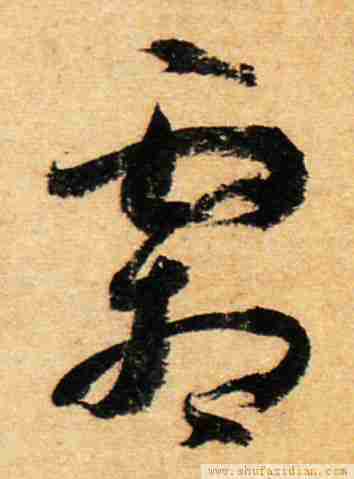 霜
www.shufazidian.com